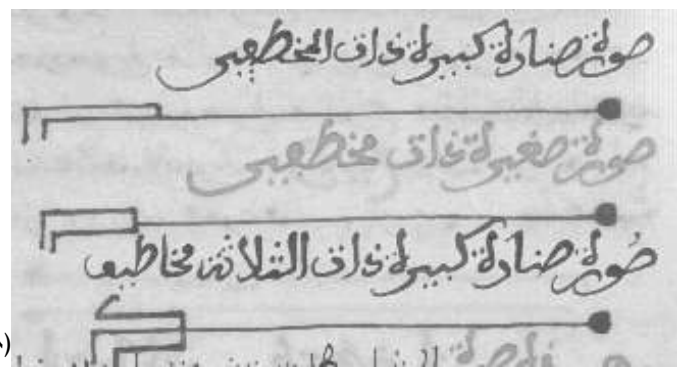 صورة صنارة كبيرة ذات المخطفين
صورة صغيرة ذات مخطفين
صُورة صنارة كبيرة ذات الثلاثة مخاطيف